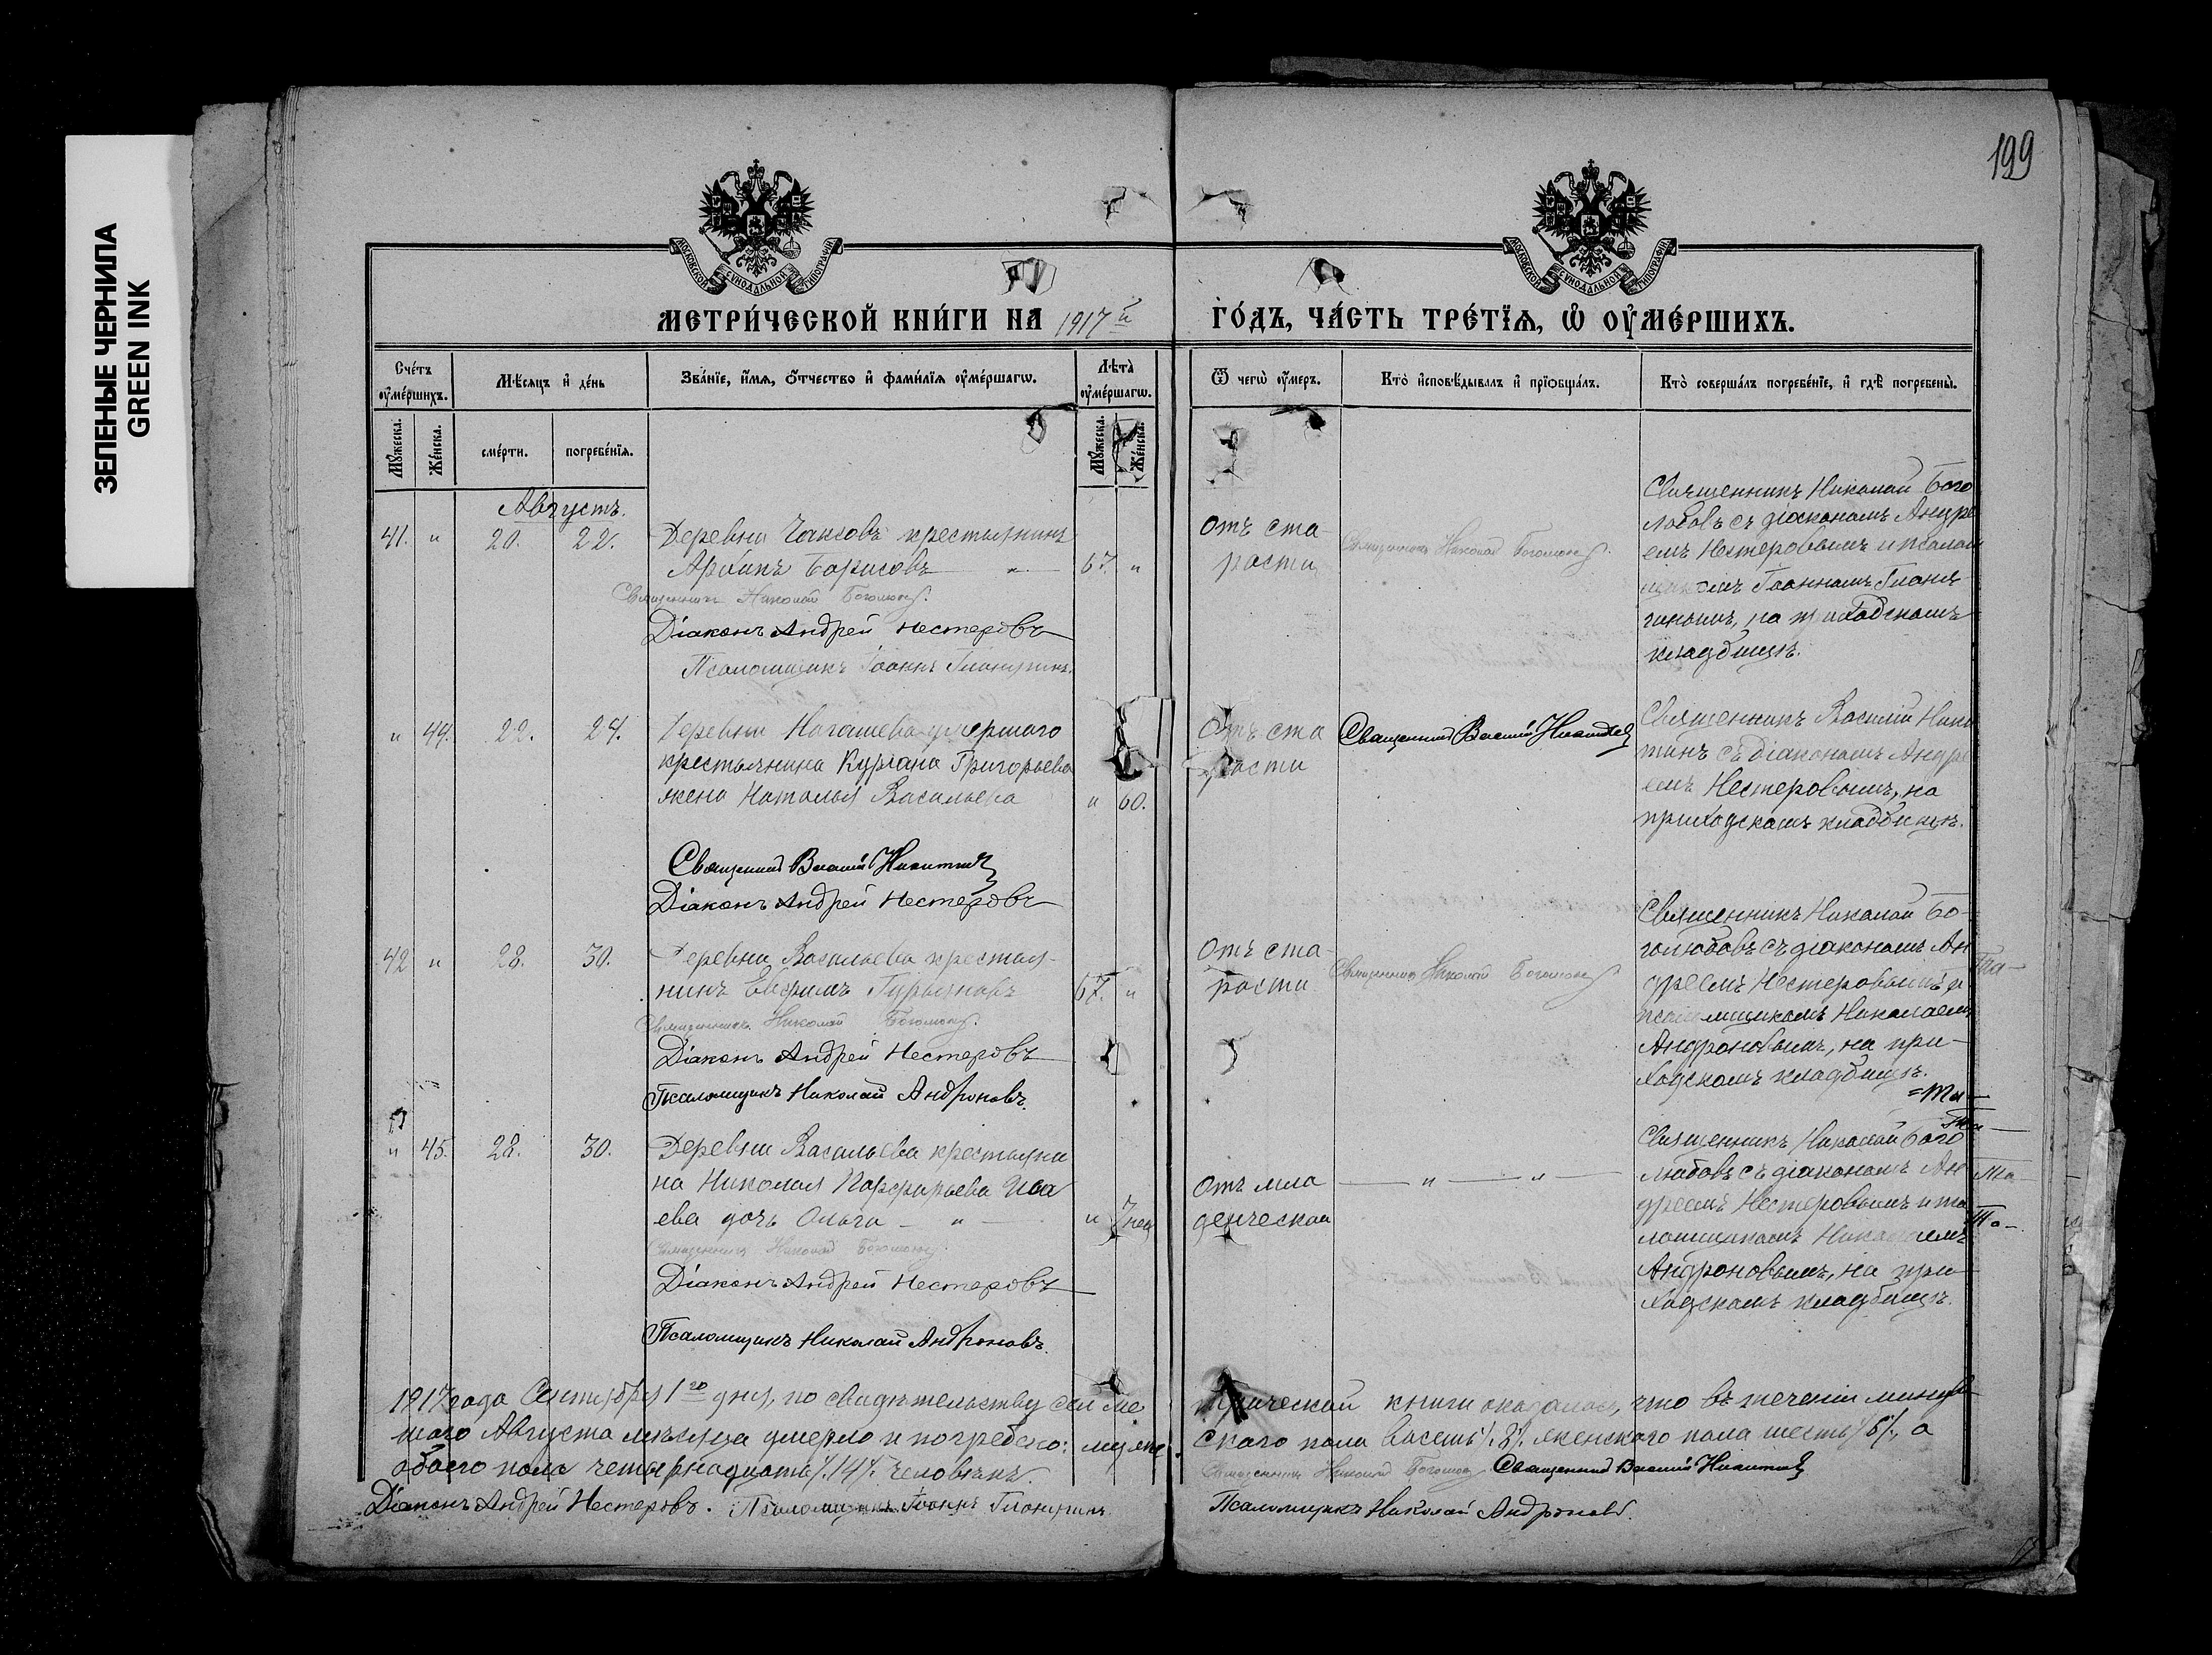 ЗЕЛЕНЫЕ ЧЕРНИЛА
GREEN INK
199
МОСКОВСКОЙ СѴНОДАЛЬНОЙ ТИПОГРАФІИ
МОСКОВСКОЙ СѴНОДАЛЬНОЙ ТИПОГРАФІИ
МЕТРИ́ЧЕСКОЙ КНИ́ГИ НА 1917й
ГО́ДЪ, ЧА́СТЬ ТРЕ́ТЇѦ, Ѡ ОУ҆МЕ́РШИХЪ.
Сче́тъ оу҆ме́ршихъ.
Мѣ́сѧцъ и҆ де́нь
Зва́нїе, и҆́мѧ, ѻ҆́тчество и҆ фами́лїѧ оу҆ме́ршагѡ.
Лѣ́та̀ оу҆ме́ршагѡ.
Ѿ чегѡ̀ оу҆́меръ.
Кто̀ и҆сповѣ́дывалъ и҆ прїѡбща́лъ.
Кто̀ соверша́лъ погребе́нїе, и҆ гдѣ̀ погребены̀.
Мꙋ́жеска.
Же́нска.
сме́рти.
погребе́нїѧ.
Мꙋ́жеска.
Же́нска.
Августъ.
41. " 20. 22.
Деревни крестьянинъ
Борисовъ — " —
67. "
Священникъ Николай
Діаконъ Андрей Нестеровъ
Псаломщикъ Іоаннъ
Отъ ста-
рости
Священникъ Николай
Священникъ Николай Бого
любовъ съ діакономъ Андре
емъ Нестеровымъ и псалом
щикомъ Іоанномъ
на приходскомъ
кладбищѣ.
" 44. 22. 24.
Деревни умершаго
крестьянина Григорьева
жена Наталья Васильева
" 60.
Священникъ Василій Никитинъ
Діаконъ Андрей Нестеровъ
Отъ ста
рости
Священникъ Василій Никитинъ
Священникъ Василій Ники
тинъ съ діакономъ Андре
емъ Нестеровымъ, на
приходскомъ кладбищѣ.
42 " 28. 30.
Деревни Васильева крестья-
нинъ Гурьяновъ
67. "
Священникъ Николай
Діаконъ Андрей Нестеровъ
Псаломщикъ Николай Андроновъ.
Отъ ста-
рости
Священникъ Николай
Священникъ Николай Бо-
голюбовъ съ діакономъ Ан
дреемъ Нестеровымъ и
псаломщикомъ Николаемъ
Андроновымъ, на при-
ходскомъ кладбищѣ.
" 45. 28. 30.
Деревни Васильева крестьяни
на Николая Порфирьева Иса
ева дочь Ольга — " —
" 7 нед
Священникъ Николай
Діаконъ Андрей Нестеровъ
Псаломщикъ Николай Андроновъ.
Отъ мла
денческой
— " — " —
Священникъ Николай Бого
любовъ съ діакономъ Ан
дреемъ Нестеровымъ и пса
ломщикомъ Николаемъ
Андроновымъ, на при-
ходскомъ кладбищѣ.
1917 года Сентября 1го дня, по свидѣтельству сей ме
трической книги оказалось, что въ теченіи минув
шаго Августа мѣсяца умерло и погребено: муже
скаго пола восемь /.8/. женскаго пола шесть /6/., а
обоего пола четырнадцать /.14/. человѣкъ.
Священникъ Николай Священникъ Василій Никитинъ
Діаконъ Андрей Нестеровъ. Псаломщикъ Іоаннъ
Псаломщикъ Николай Андроновъ.